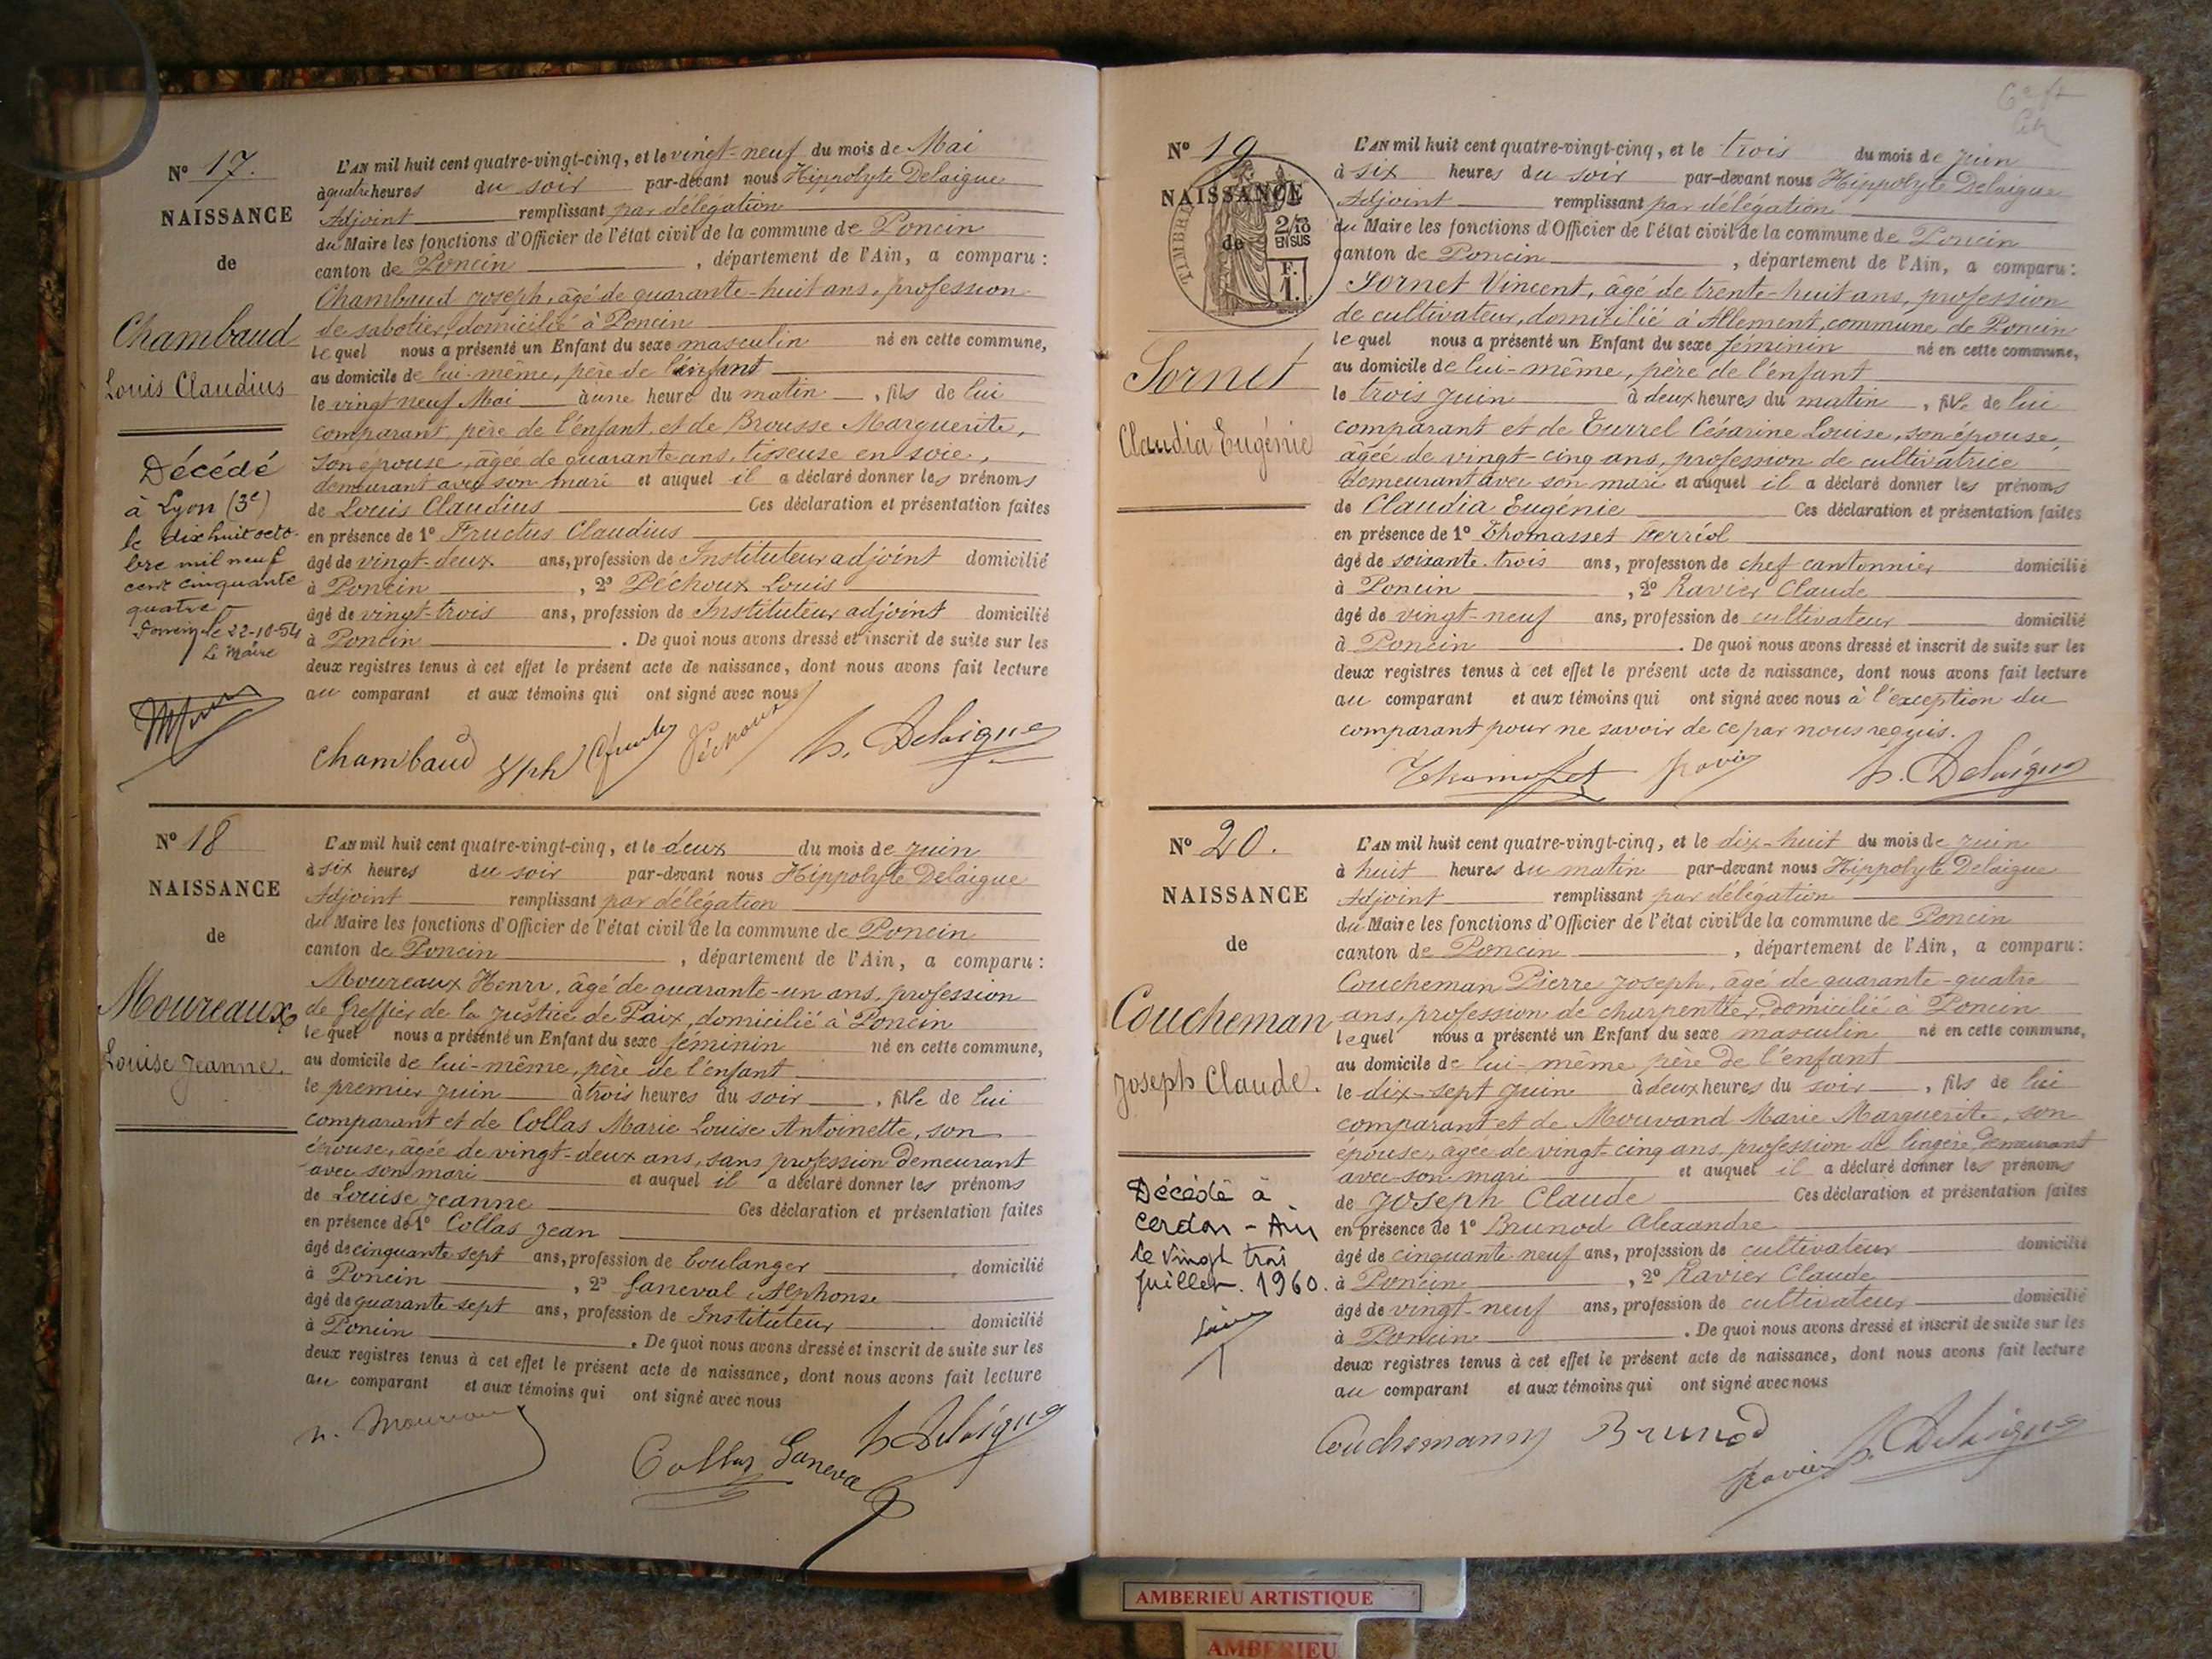 N° 17.
NAISSANCE
de
Chambaud
Louis Claudius
Décédé
à Lyon (3e)
le dix huit octo-
bre mil neuf
cent cinquante
quatre
Poncin le 22-10-54
Le Maire
L'AN mil huit cent quatre-vingt-cinq, et le vingt-neuf du mois de Mai
à quatre heures du soir par-devant nous Hippolyte Delaigue
Adjoint remplissant par délégation
du Maire les fonctions d'Officier de l'état civil de la commune de Poncin
canton de Poncin, département de l'Ain, a comparu :
Chambaud Joseph, âgé de quarante-huit ans, profession
de sabotier, domicilié à Poncin
lequel nous a présenté un Enfant du sexe masculin né en cette commune,
au domicile de lui-même, père de l'enfant
le vingt neuf Mai à une heure du matin, fils de lui
comparant, père de l'enfant, et de Brousse Marguerite,
son épouse, âgée de quarante ans, tisseuse en soie,
demeurant avec son mari et auquel il a déclaré donner les prénoms
de Louis Claudius Ces déclaration et présentation faites
en présence de 1° Fructus Claudius
âgé de vingt-deux ans, profession de Instituteur adjoint domicilié
à Poncin, 2° Péchoux Louis
âgé de vingt-trois ans, profession de Instituteur adjoint domicilié
à Poncin. De quoi nous avons dressé et inscrit de suite sur les
deux registres tenus à cet effet le présent acte de naissance, dont nous avons fait lecture
au comparant et aux témoins qui ont signé avec nous
Chambaud Jph Péchoux h. Delaigue
N° 18
NAISSANCE
de
Moureaux
Louise Jeanne.
L'AN mil huit cent quatre-vingt-cinq, et le deux du mois de Juin
à six heures du soir par-devant nous Hippolyte Delaigue
Adjoint remplissant par délégation
du Maire les fonctions d'Officier de l'état civil de la commune de Poncin
canton de Poncin, département de l'Ain, a comparu :
Moureaux Henri, âgé de quarante-un ans, profession
de Greffier de la Justice de Paix, domicilié à Poncin
lequel nous a présenté un Enfant du sexe féminin né en cette commune,
au domicile de lui-même, père de l'enfant
le premier Juin à trois heures du soir, fille de lui
comparant et de Collas Marie Louise Antoinette, son
épouse, âgée de vingt-deux ans, sans profession demeurant
avec son mari et auquel il a déclaré donner les prénoms
de Louise Jeanne Ces déclaration et présentation faites
en présence de 1° Collas Jean
âgé de cinquante-sept ans, profession de boulanger domicilié
à Poncin, 2° Janeval Alphonse
âgé de quarante-sept ans, profession de Instituteur domicilié
à Poncin. De quoi nous avons dressé et inscrit de suite sur les
deux registres tenus à cet effet le présent acte de naissance, dont nous avons fait lecture
au comparant et aux témoins qui ont signé avec nous
h. Moureaux Collas Janeval h Delaigue
N° 19
NAISSANCE
de
TIMBRE
2/10
EN SUS
F.
1.
Sornet
Claudia Eugénie
L'AN mil huit cent quatre-vingt-cinq, et le trois du mois de Juin
à six heures du soir par-devant nous Hippolyte Delaigue
Adjoint remplissant par délégation
du Maire les fonctions d'Officier de l'état civil de la commune de Poncin
canton de Poncin, département de l'Ain, a comparu :
Sornet Vincent, âgé de trente-huit ans, profession
de cultivateur, domicilié à Allement, commune de Poncin
lequel nous a présenté un Enfant du sexe féminin né en cette commune,
au domicile de lui-même, père de l'enfant
le trois Juin à deux heures du matin, fille de lui
comparant et de Turrel Césarine Louise, son épouse,
âgée de vingt-cinq ans, profession de cultivatrice
demeurant avec son mari et auquel il a déclaré donner les prénoms
de Claudia Eugénie Ces déclaration et présentation faites
en présence de 1° Thomasset Ferréol
âgé de soixante-trois ans, profession de chef cantonnier domicilié
à Poncin, 2° Ravier Claude
âgé de vingt-neuf ans, profession de cultivateur domicilié
à Poncin. De quoi nous avons dressé et inscrit de suite sur les
deux registres tenus à cet effet le présent acte de naissance, dont nous avons fait lecture
au comparant et aux témoins qui ont signé avec nous à l'exception du
comparant pour ne savoir de ce par nous requis.
Thomasset Ravier h. Delaigue
N° 20.
NAISSANCE
de
Coucheman
Joseph Claude.
Décédé à
Cerdon - Ain
le vingt trois
Juillet. 1960.
L'AN mil huit cent quatre-vingt-cinq, et le dix-huit du mois de Juin
à huit heures du matin par-devant nous Hippolyte Delaigue
Adjoint remplissant par délégation
du Maire les fonctions d'Officier de l'état civil de la commune de Poncin
canton de Poncin, département de l'Ain, a comparu :
Coucheman Pierre Joseph, âgé de quarante-quatre
ans, profession de charpentier, domicilié à Poncin
lequel nous a présenté un Enfant du sexe masculin né en cette commune,
au domicile de lui-même père de l'enfant
le dix-sept Juin à deux heures du soir, fils de lui
comparant et de Mouvand Marie Marguerite, son
épouse, âgée de vingt-cinq ans, profession de lingère demeurant
avec son mari et auquel il a déclaré donner les prénoms
de Joseph Claude Ces déclaration et présentation faites
en présence de 1° Brunod Alexandre
âgé de cinquante-neuf ans, profession de cultivateur domicilié
à Poncin, 2° Ravier Claude
âgé de vingt-neuf ans, profession de cultivateur domicilié
à Poncin. De quoi nous avons dressé et inscrit de suite sur les
deux registres tenus à cet effet le présent acte de naissance, dont nous avons fait lecture
au comparant et aux témoins qui ont signé avec nous
Couchemann Brunod Ravier h. Delaigue
AMBERIEU ARTISTIQUE
AMBERIEU